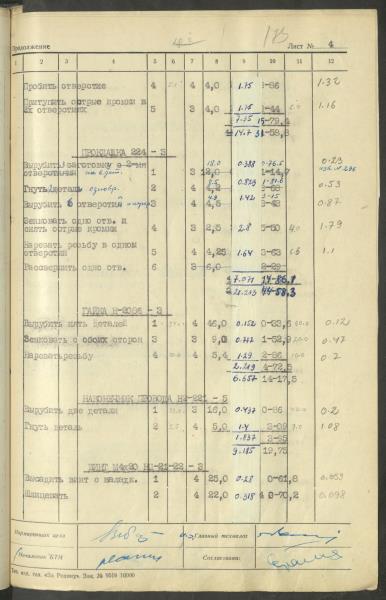 Продолжение
Лист № 4
1 2 3 4 5 6 7 8 9 10 11 12
Пробить отверстие 4 4 4,0 1.15 1-86 1.32
Притупить острые кромки в
2х отверстиях 5 3 4,0 1.15 1-44 1.16
7.15 15-79,4
14.7 31-58,8
ПРОКЛАДКА 224 - 3
Вырубить заготовку с 2-мя 18.0 0.388 0-76.5 0.23
отверстиями 1 3 12,0 1-14,7
Гнуть деталь 2 4 0.829 0.53
Вырубить 6 отверстий 3 4 4,5 1.42 3-15 0.87
Зенковать одно отв. и
снять острые кромки 4 3 2,5 2.8 5-50 1.79
Нарезать резьбу в одном
отверстии 5 4 4,25 1.64 3-63 1.1
Рассверлить одно отв. 6 3 6,0 2-29
7.071 14-86,1
44-58,3
ГАЙКА Н-2061 - 3
Вырубить пять деталей 1 4 46,0 0.152 0-33,6 0.12
Зенковать с обоих сторон 3 3 9,0 0.772 1-52,9 0.47
Нарезать резьбу 4 4 5,4 1.29 2-86 0.2
2.219 4-72,5
6.657 14-17,5
НАКОНЕЧНИК ПРОВОДА НЗ-221 - 5
Вырубить две детали 1 3 16,0 0.437 0-86 0.2
Гнуть деталь 2 4 5,0 1.4 3-09 1.08
1.837 3-95
9.185 19,75
ВИНТ М4х20 НЗ-21-22 - 3
Высадить винт с наладк. 1 4 25,0 0.28 0-61,8 0.059
Шлицевать 2 4 22,0 0.318 0-70,2 0.098
Нормировщик цеха
Главный технолог
Начальник БТН
Согласовано: